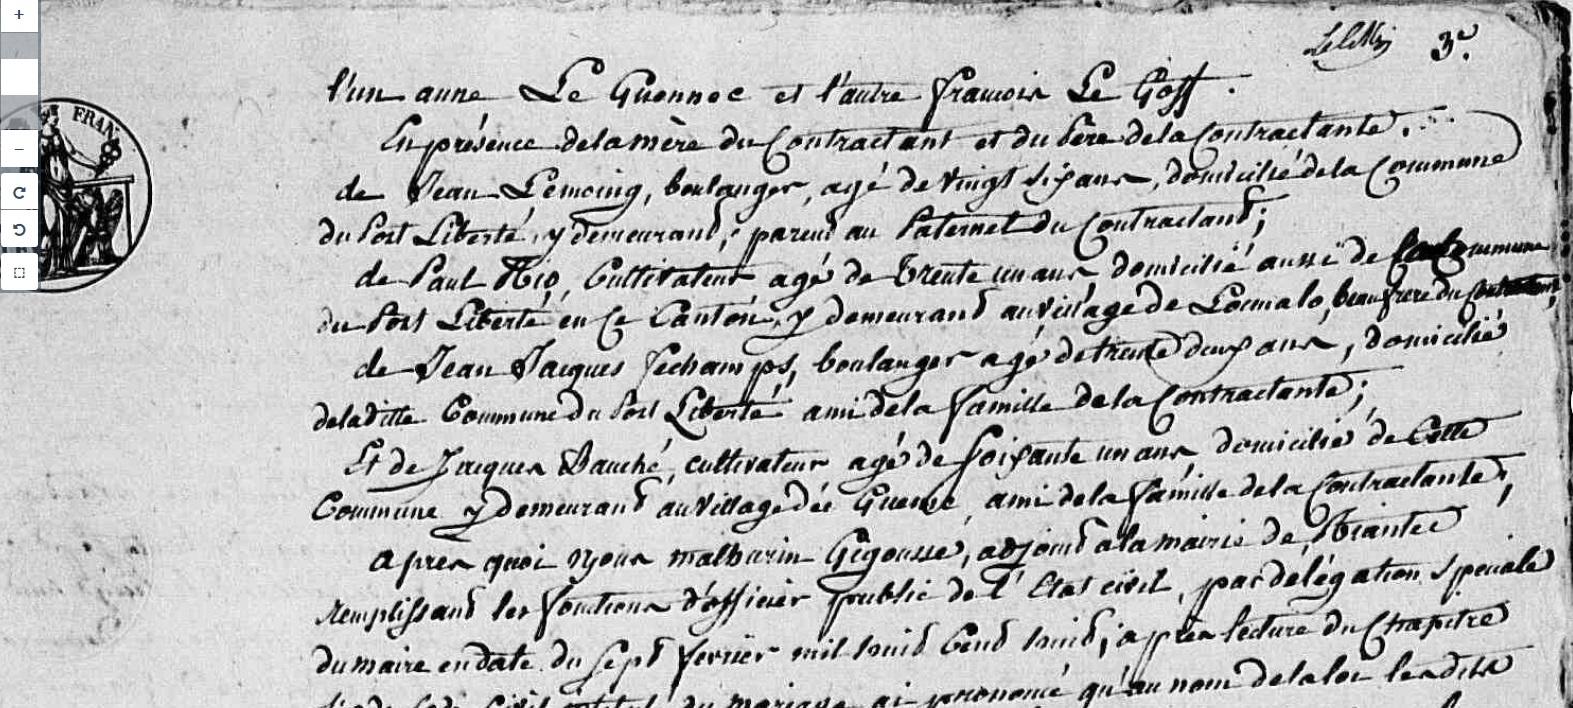 3e.
l'un anne Le Guennec et l'autre francois Le Goff.
En présence dela mère du Contractant et du Père de la Contractante.
de Jean Lemoing, boulanger, agé de vingt six ans, domicilié dela Commune
du Port Liberté, y demeurant, parent au Paternel du Contractant;
de Paul Rio, Cultivateur agé de Trente un ans, domicilié aussi de Commune
du Port Liberté en Ce Canton, y demeurant au village de Locmalo, beau frere du
de Jean Jacques fechamps, boulanger agé de trente deux ans, domicilié
deladitte Commune du Port Liberté ami dela famille dela Contractante;
Et de Jacques Bauché, cultivateur agé de Soixante un ans domicilié de Cette
Commune y Demeurant au village ami dela famille dela Contractante;
apres quoi nous mathurin Gigousse, adjoint ala mairie de Riantec
Remplissant les fonctions d'officier public de l'Etat civil, par délégation speciale
du maire en date du Sept fevrier mil huit Cent huit; après lecture du Chapitre
du mariage, ai prononcé qu'au nom dela loi lesdits
FRAN